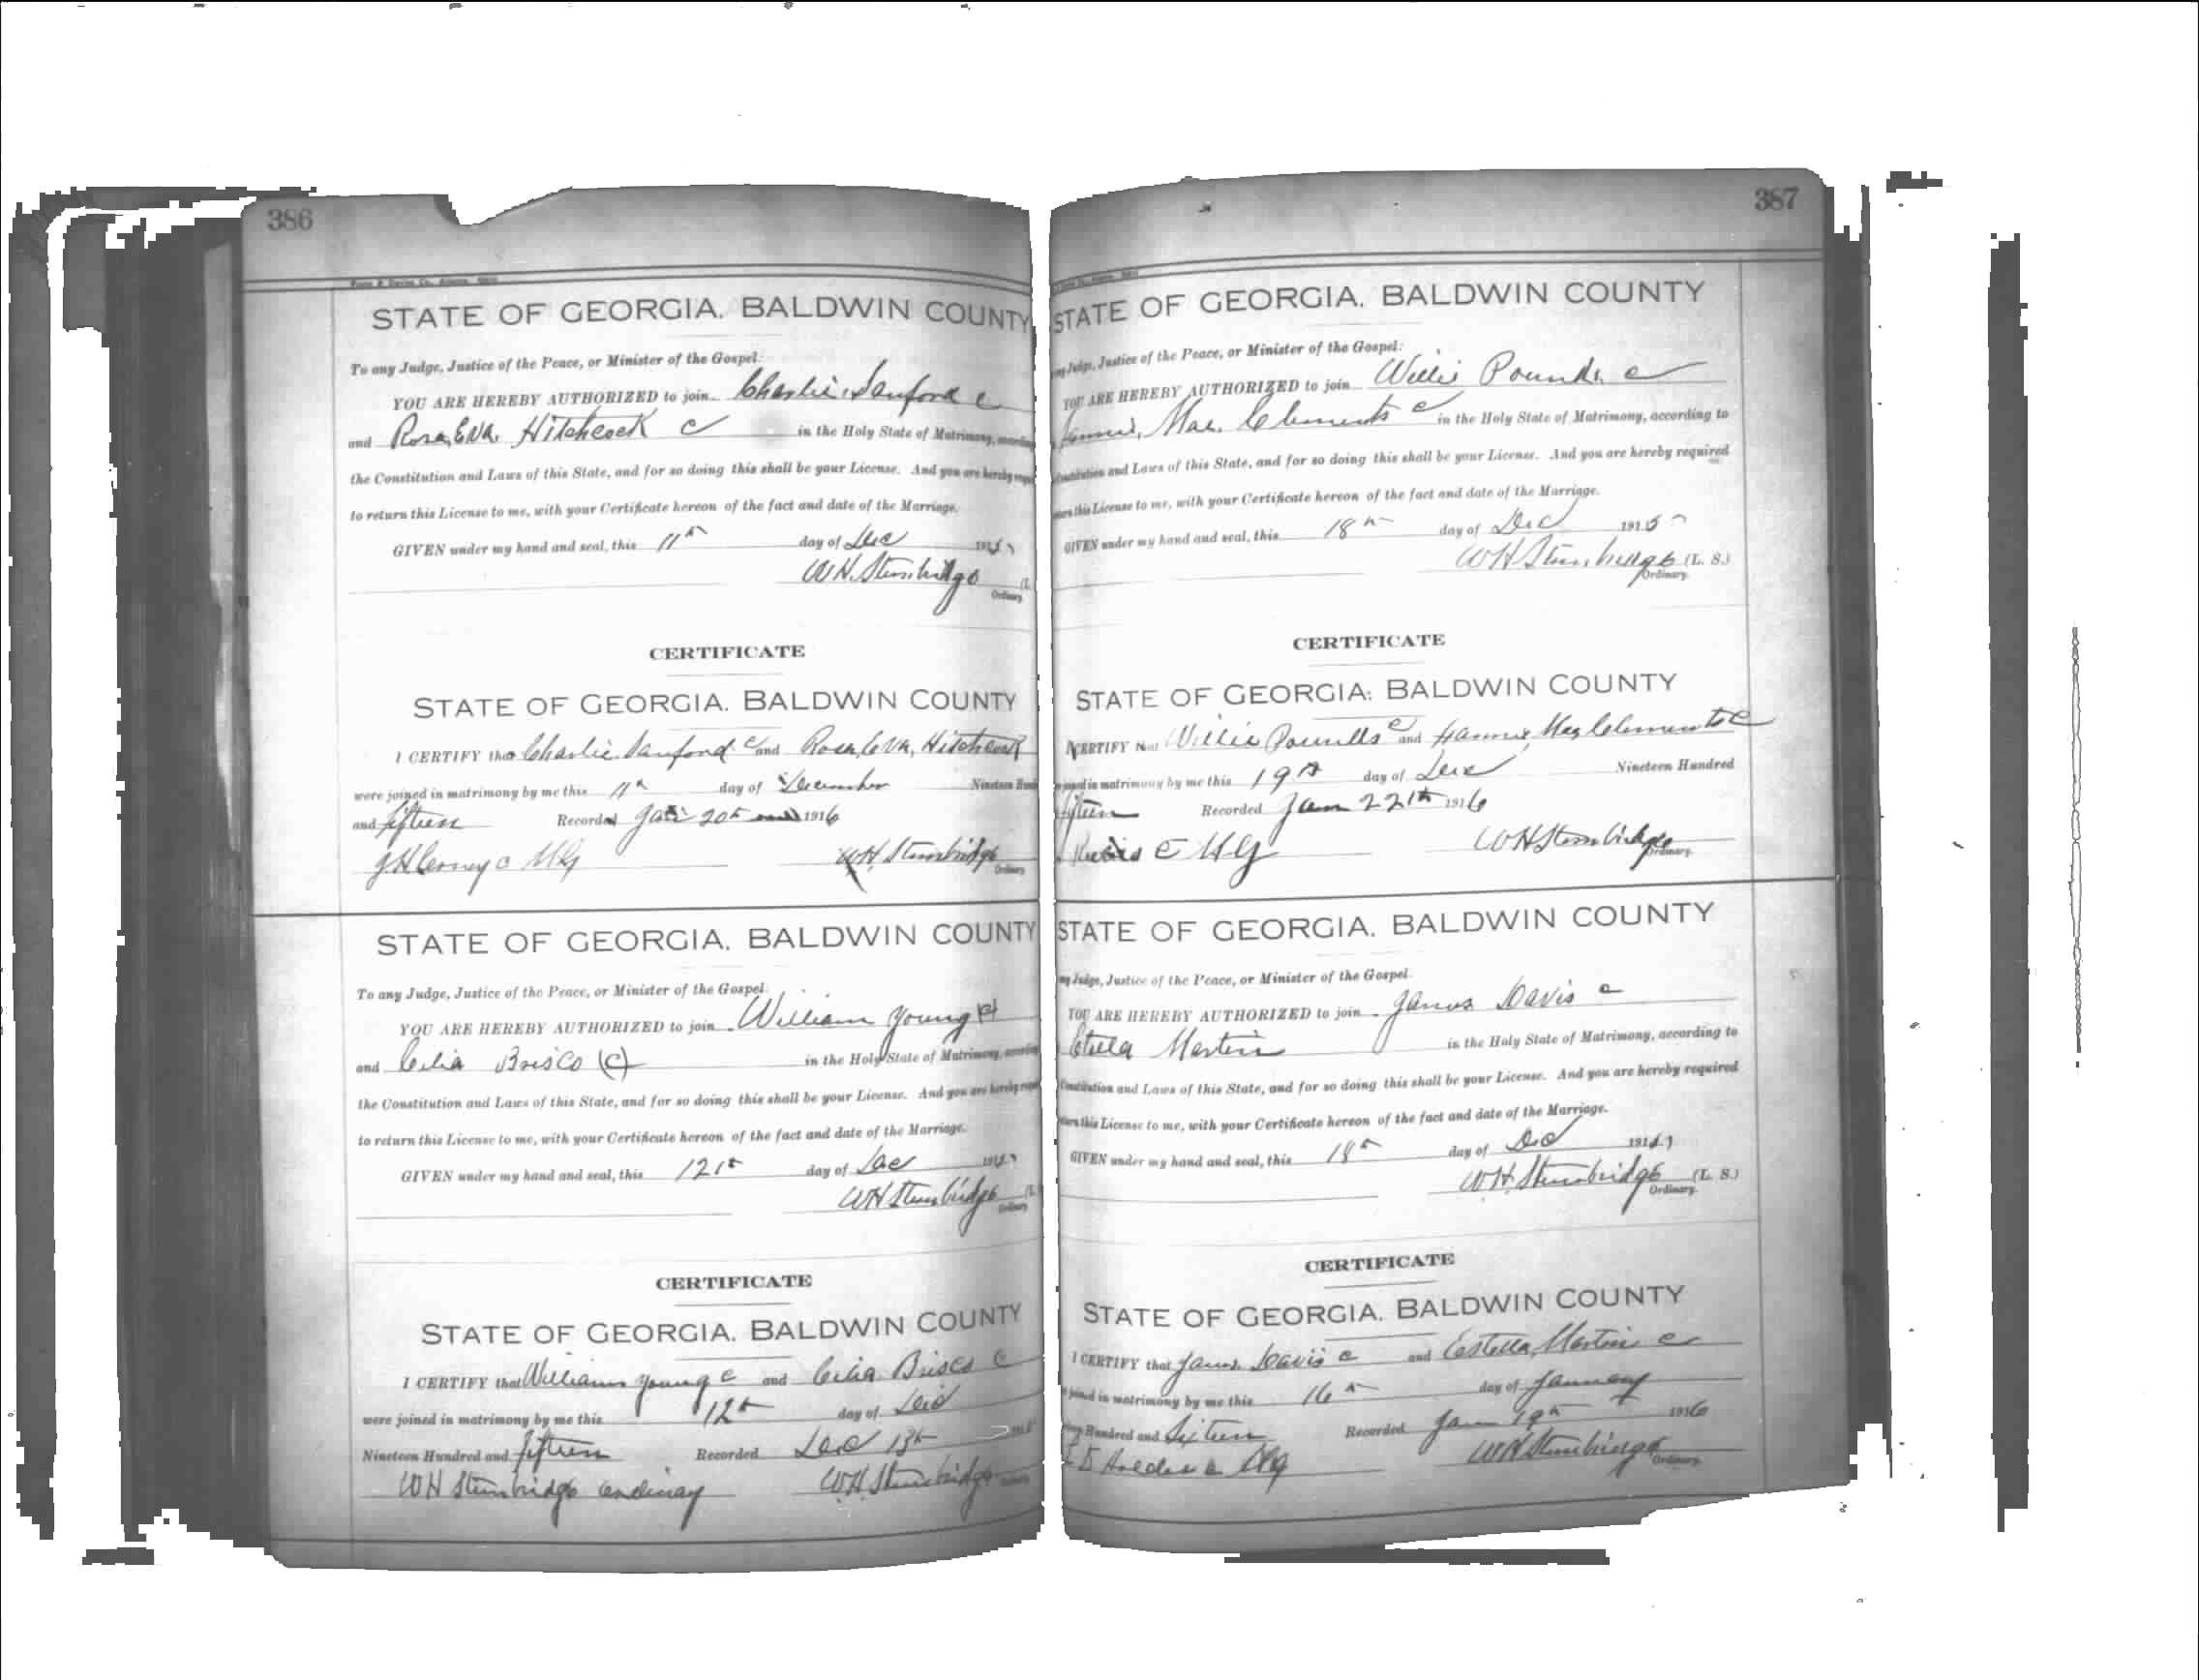 386
STATE OF GEORGIA. BALDWIN COUNTY
To any Judge, Justice of the Peace, or Minister of the Gospel:
YOU ARE HEREBY AUTHORIZED to join Charlie Sanford c
and Rosa Eva Hitchcock c in the Holy State of Matrimony, according
the Constitution and Laws of this State, and for so doing this shall be your License. And you are hereby
to return this License to me, with your Certificate hereon of the fact and date of the Marriage.
GIVEN under my hand and seal, this 11th day of Dec 1915
W H. Stembridge (L
Ordinary
CERTIFICATE
STATE OF GEORGIA. BALDWIN COUNTY
I CERTIFY that Charlie Sanford c and Rosa Eva Hitchcock
were joined in matrimony by me this 11th day of December Nineteen
and fifteen Recorded Jan 20th 1916
W.H. Stembridge
Ordinary
STATE OF GEORGIA. BALDWIN COUNTY
To any Judge, Justice of the Peace, or Minister of the Gospel.
YOU ARE HEREBY AUTHORIZED to join William Young (c)
and Celia Brisco (c) in the Holy State of Matrimony, according
the Constitution and Laws of this State, and for so doing this shall be your License. And you are hereby
to return this License to me, with your Certificate hereon of the fact and date of the Marriage.
GIVEN under my hand and seal, this 12th day of Dec 1915
W H Stembridge
Ordinary
CERTIFICATE
STATE OF GEORGIA. BALDWIN COUNTY
I CERTIFY that William Young c and Celia Brisco c
were joined in matrimony by me this 12th day of Dec
Nineteen Hundred and fifteen Recorded Dec 13th
W H Stembridge ordinary W.H. Stembridge
387
STATE OF GEORGIA. BALDWIN COUNTY
Judge, Justice of the Peace, or Minister of the Gospel:
YOU ARE HEREBY AUTHORIZED to join Willie Pounds c
Fannie Mae Clements c in the Holy State of Matrimony, according to
Constitution and Laws of this State, and for so doing this shall be your License. And you are hereby required
this License to me, with your Certificate hereon of the fact and date of the Marriage.
GIVEN under my hand and seal, this 18th day of Dec 1915
W H Stembridge (L. S.)
Ordinary.
CERTIFICATE
STATE OF GEORGIA: BALDWIN COUNTY
CERTIFY that Willie Pounds c and Fannie Mae Clements c
joined in matrimony by me this 19th day of Dec Nineteen Hundred
fifteen Recorded Jan 22th 1916
W H Stembridge
Ordinary.
STATE OF GEORGIA. BALDWIN COUNTY
Judge, Justice of the Peace, or Minister of the Gospel.
YOU ARE HEREBY AUTHORIZED to join James Davis c
Estella Martin in the Holy State of Matrimony, according to
Constitution and Laws of this State, and for so doing this shall be your License. And you are hereby required
this License to me, with your Certificate hereon of the fact and date of the Marriage.
GIVEN under my hand and seal, this 18th day of Dec 1915
W.H. Stembridge (L. S.)
Ordinary.
CERTIFICATE
STATE OF GEORGIA. BALDWIN COUNTY
I CERTIFY that James Davis c and Estella Martin c
joined in matrimony by me this 16th day of January
Hundred and Sixteen Recorded Jan 19th 1916
W H Stembridge
Ordinary.